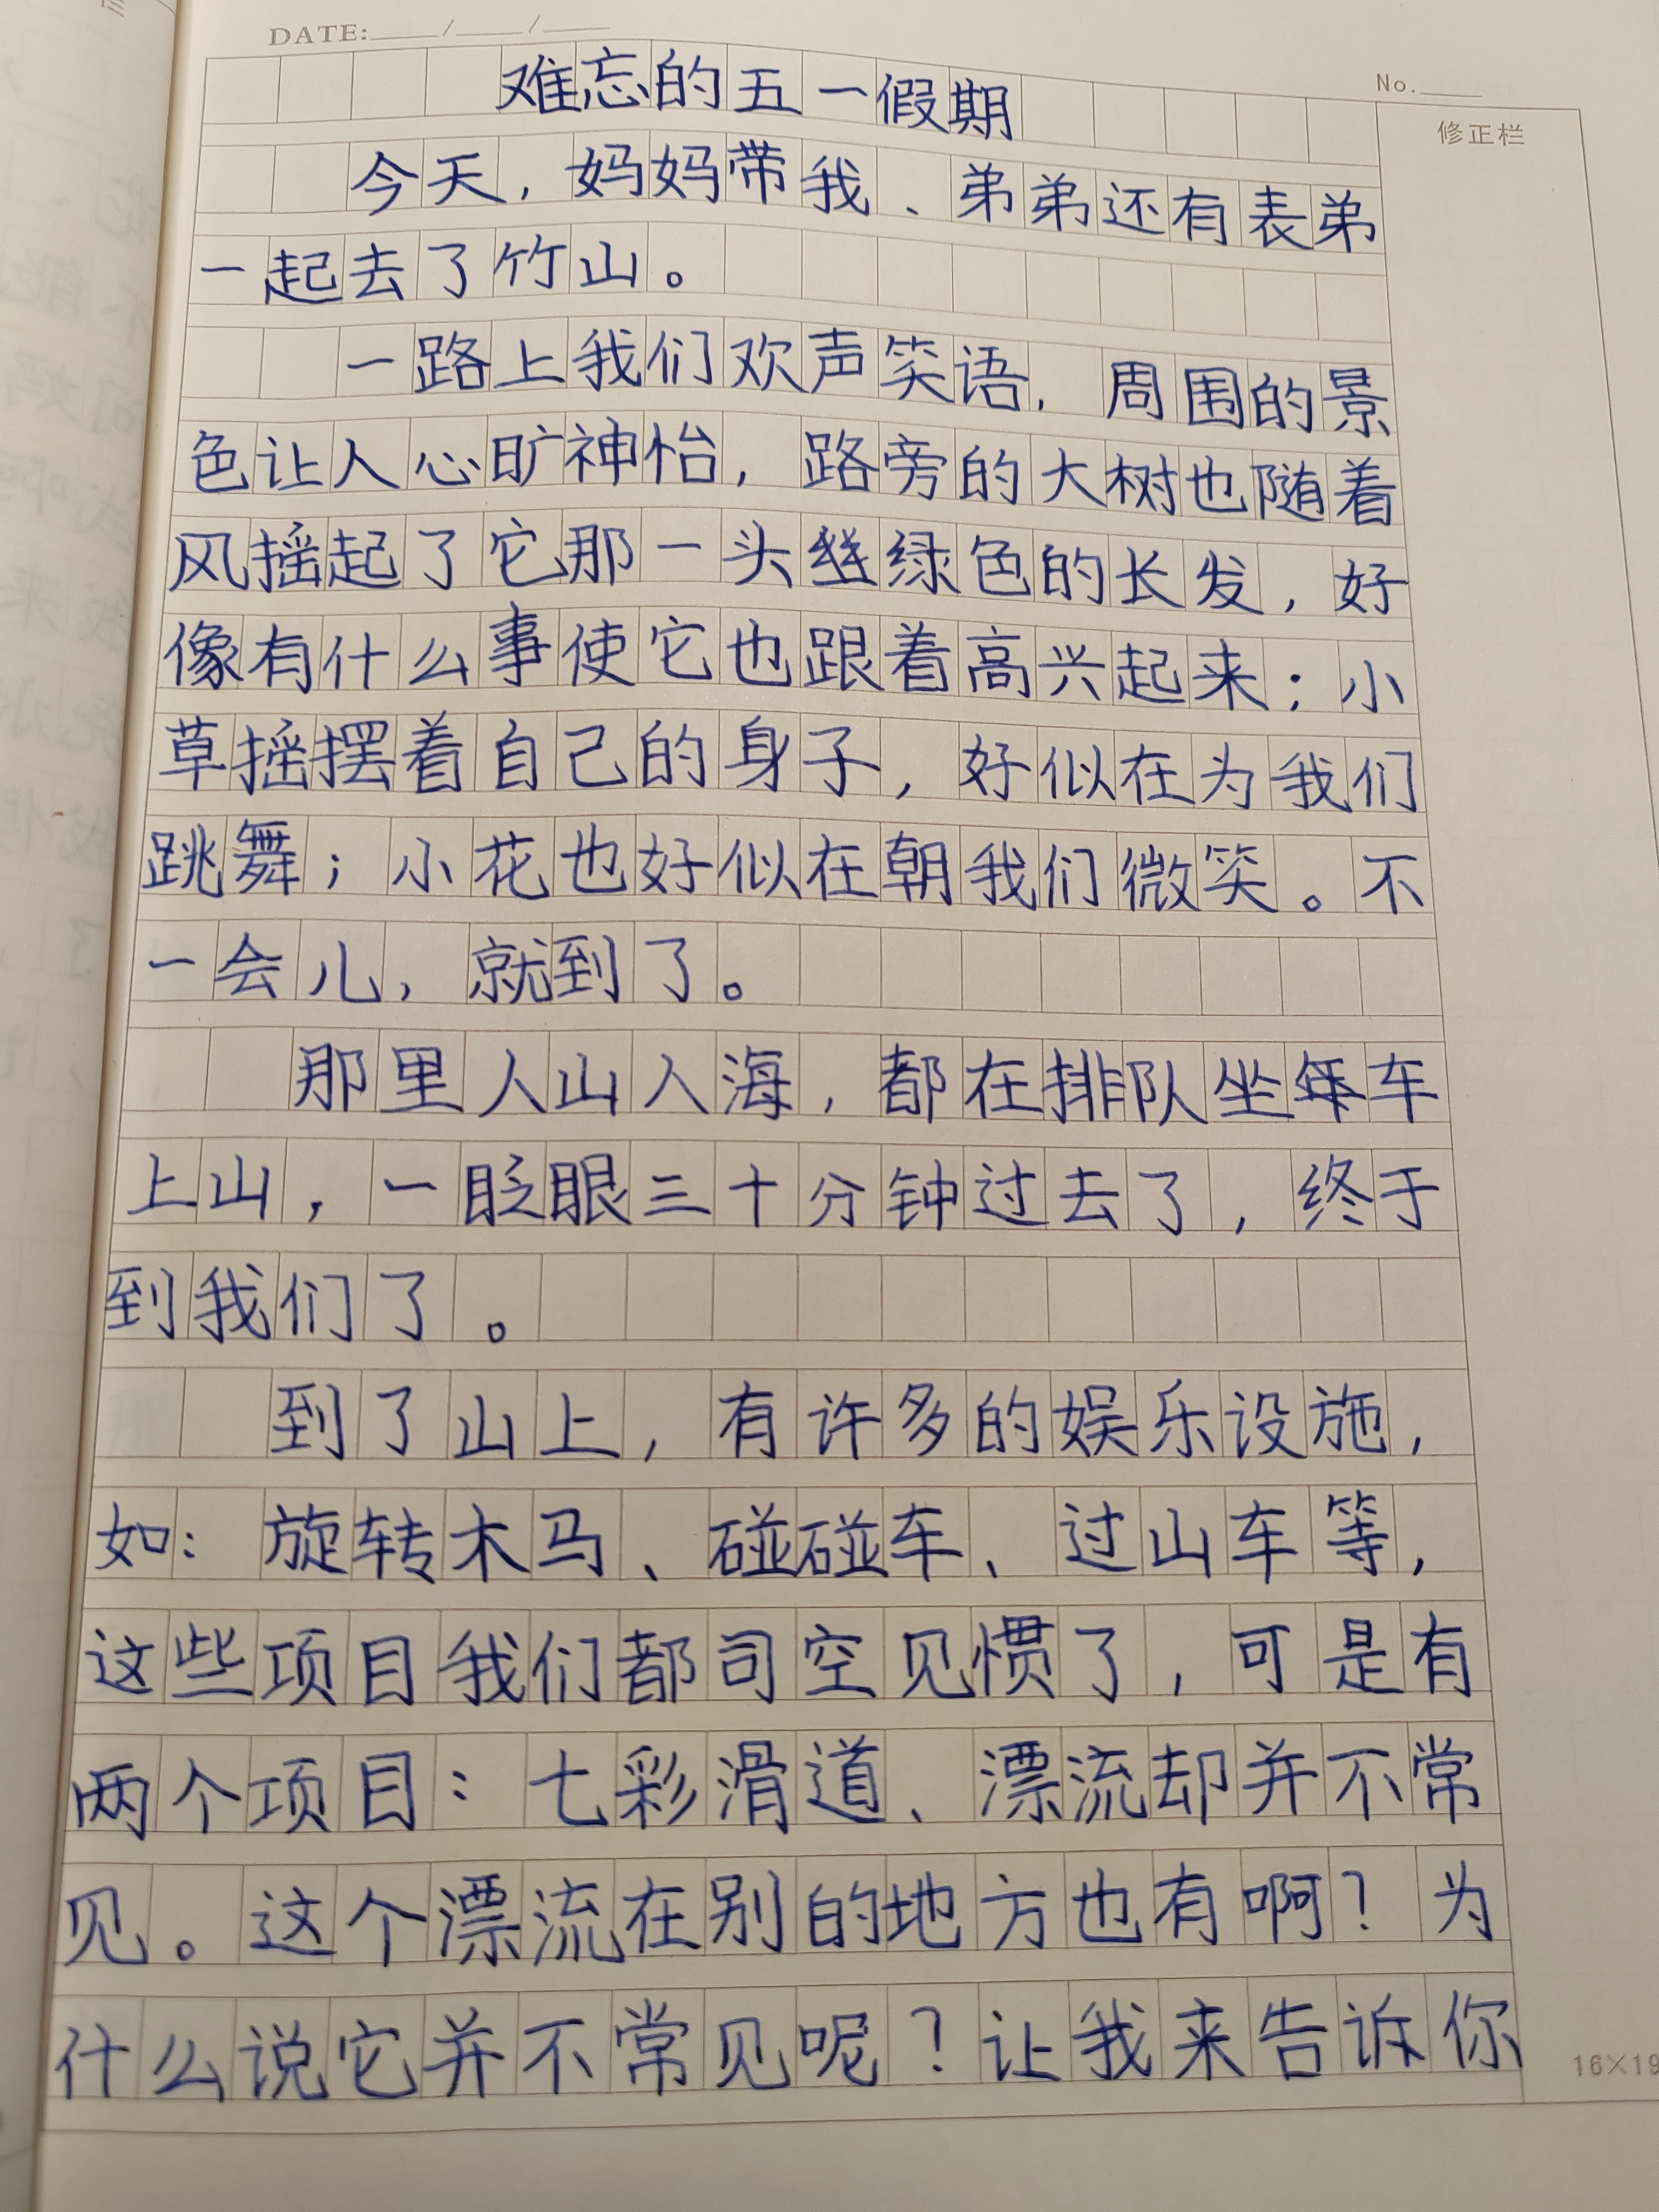 DATE:___/___/___
No.____
修正栏
难忘的五一假期
今天，妈妈带我、弟弟还有表弟
一起去了竹山。
一路上我们欢声笑语，周围的景
色让人心旷神怡，路旁的大树也随着
风摇起了它那一头绿色的长发，好
像有什么事使它也跟着高兴起来；小
草摇摆着自己的身子，好似在为我们
跳舞；小花也好似在朝我们微笑。不
一会儿，就到了。
那里人山人海，都在排队坐车
上山，一眨眼三十分钟过去了，终于
到我们了。
到了山上，有许多的娱乐设施，
如：旋转木马、碰碰车、过山车等，
这些项目我们都司空见惯了，可是有
两个项目：七彩滑道、漂流却并不常
见。这个漂流在别的地方也有啊？为
什么说它并不常见呢？让我来告诉你
16×19